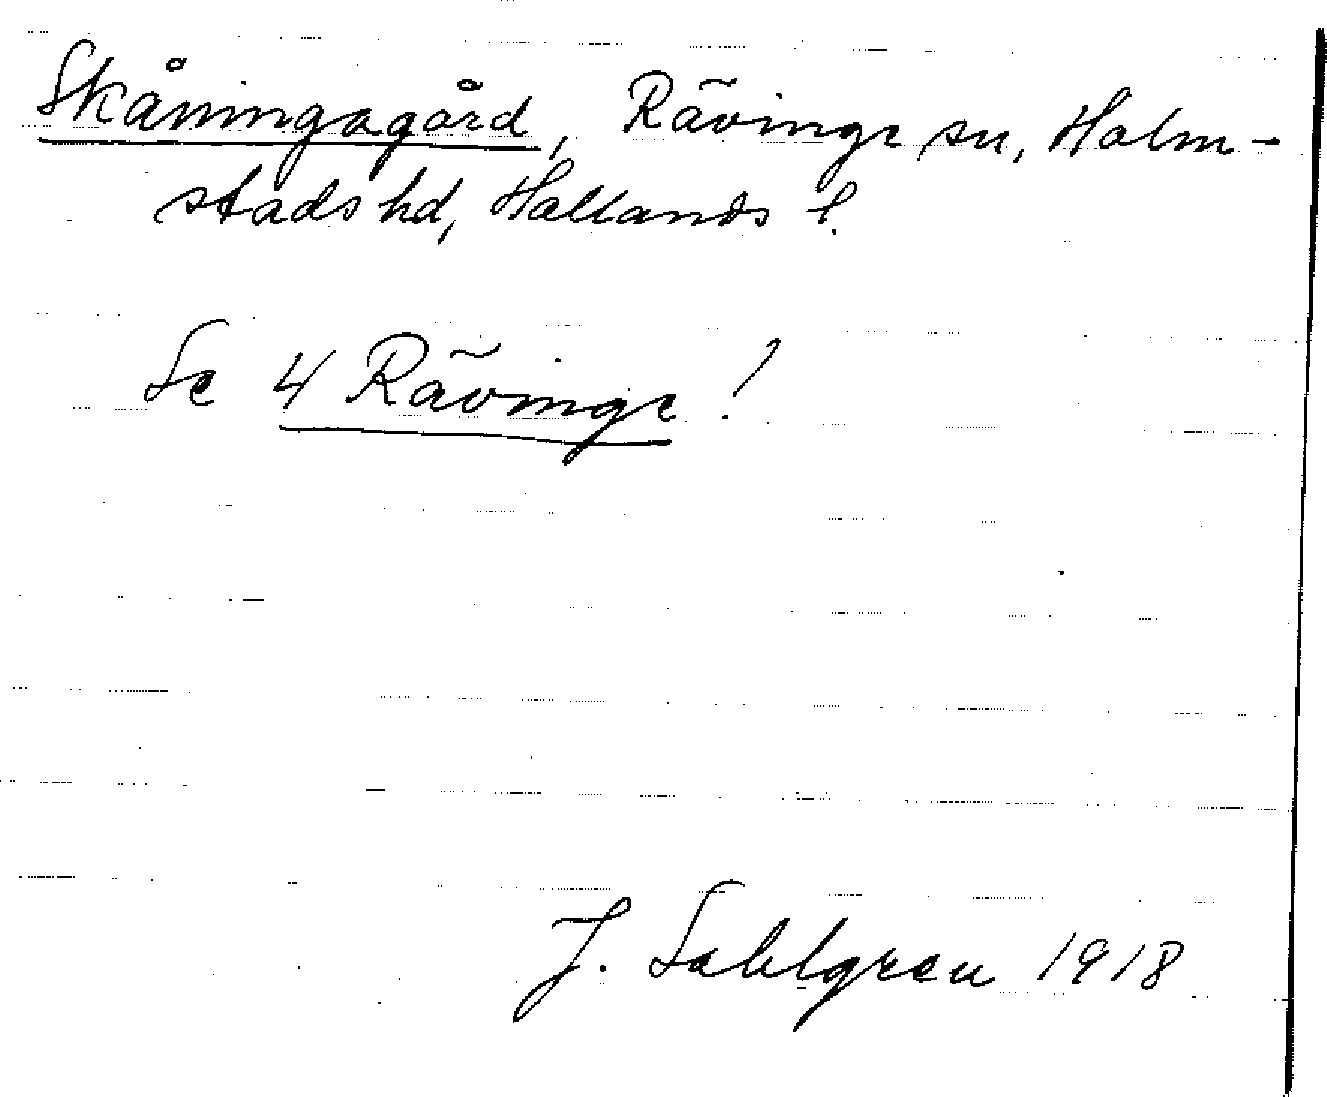 Skåningagård, Rävinge sn, Halm-
stads hd, Hallands l.
Se 4 Rävinge!
J. Sahlgren 1918